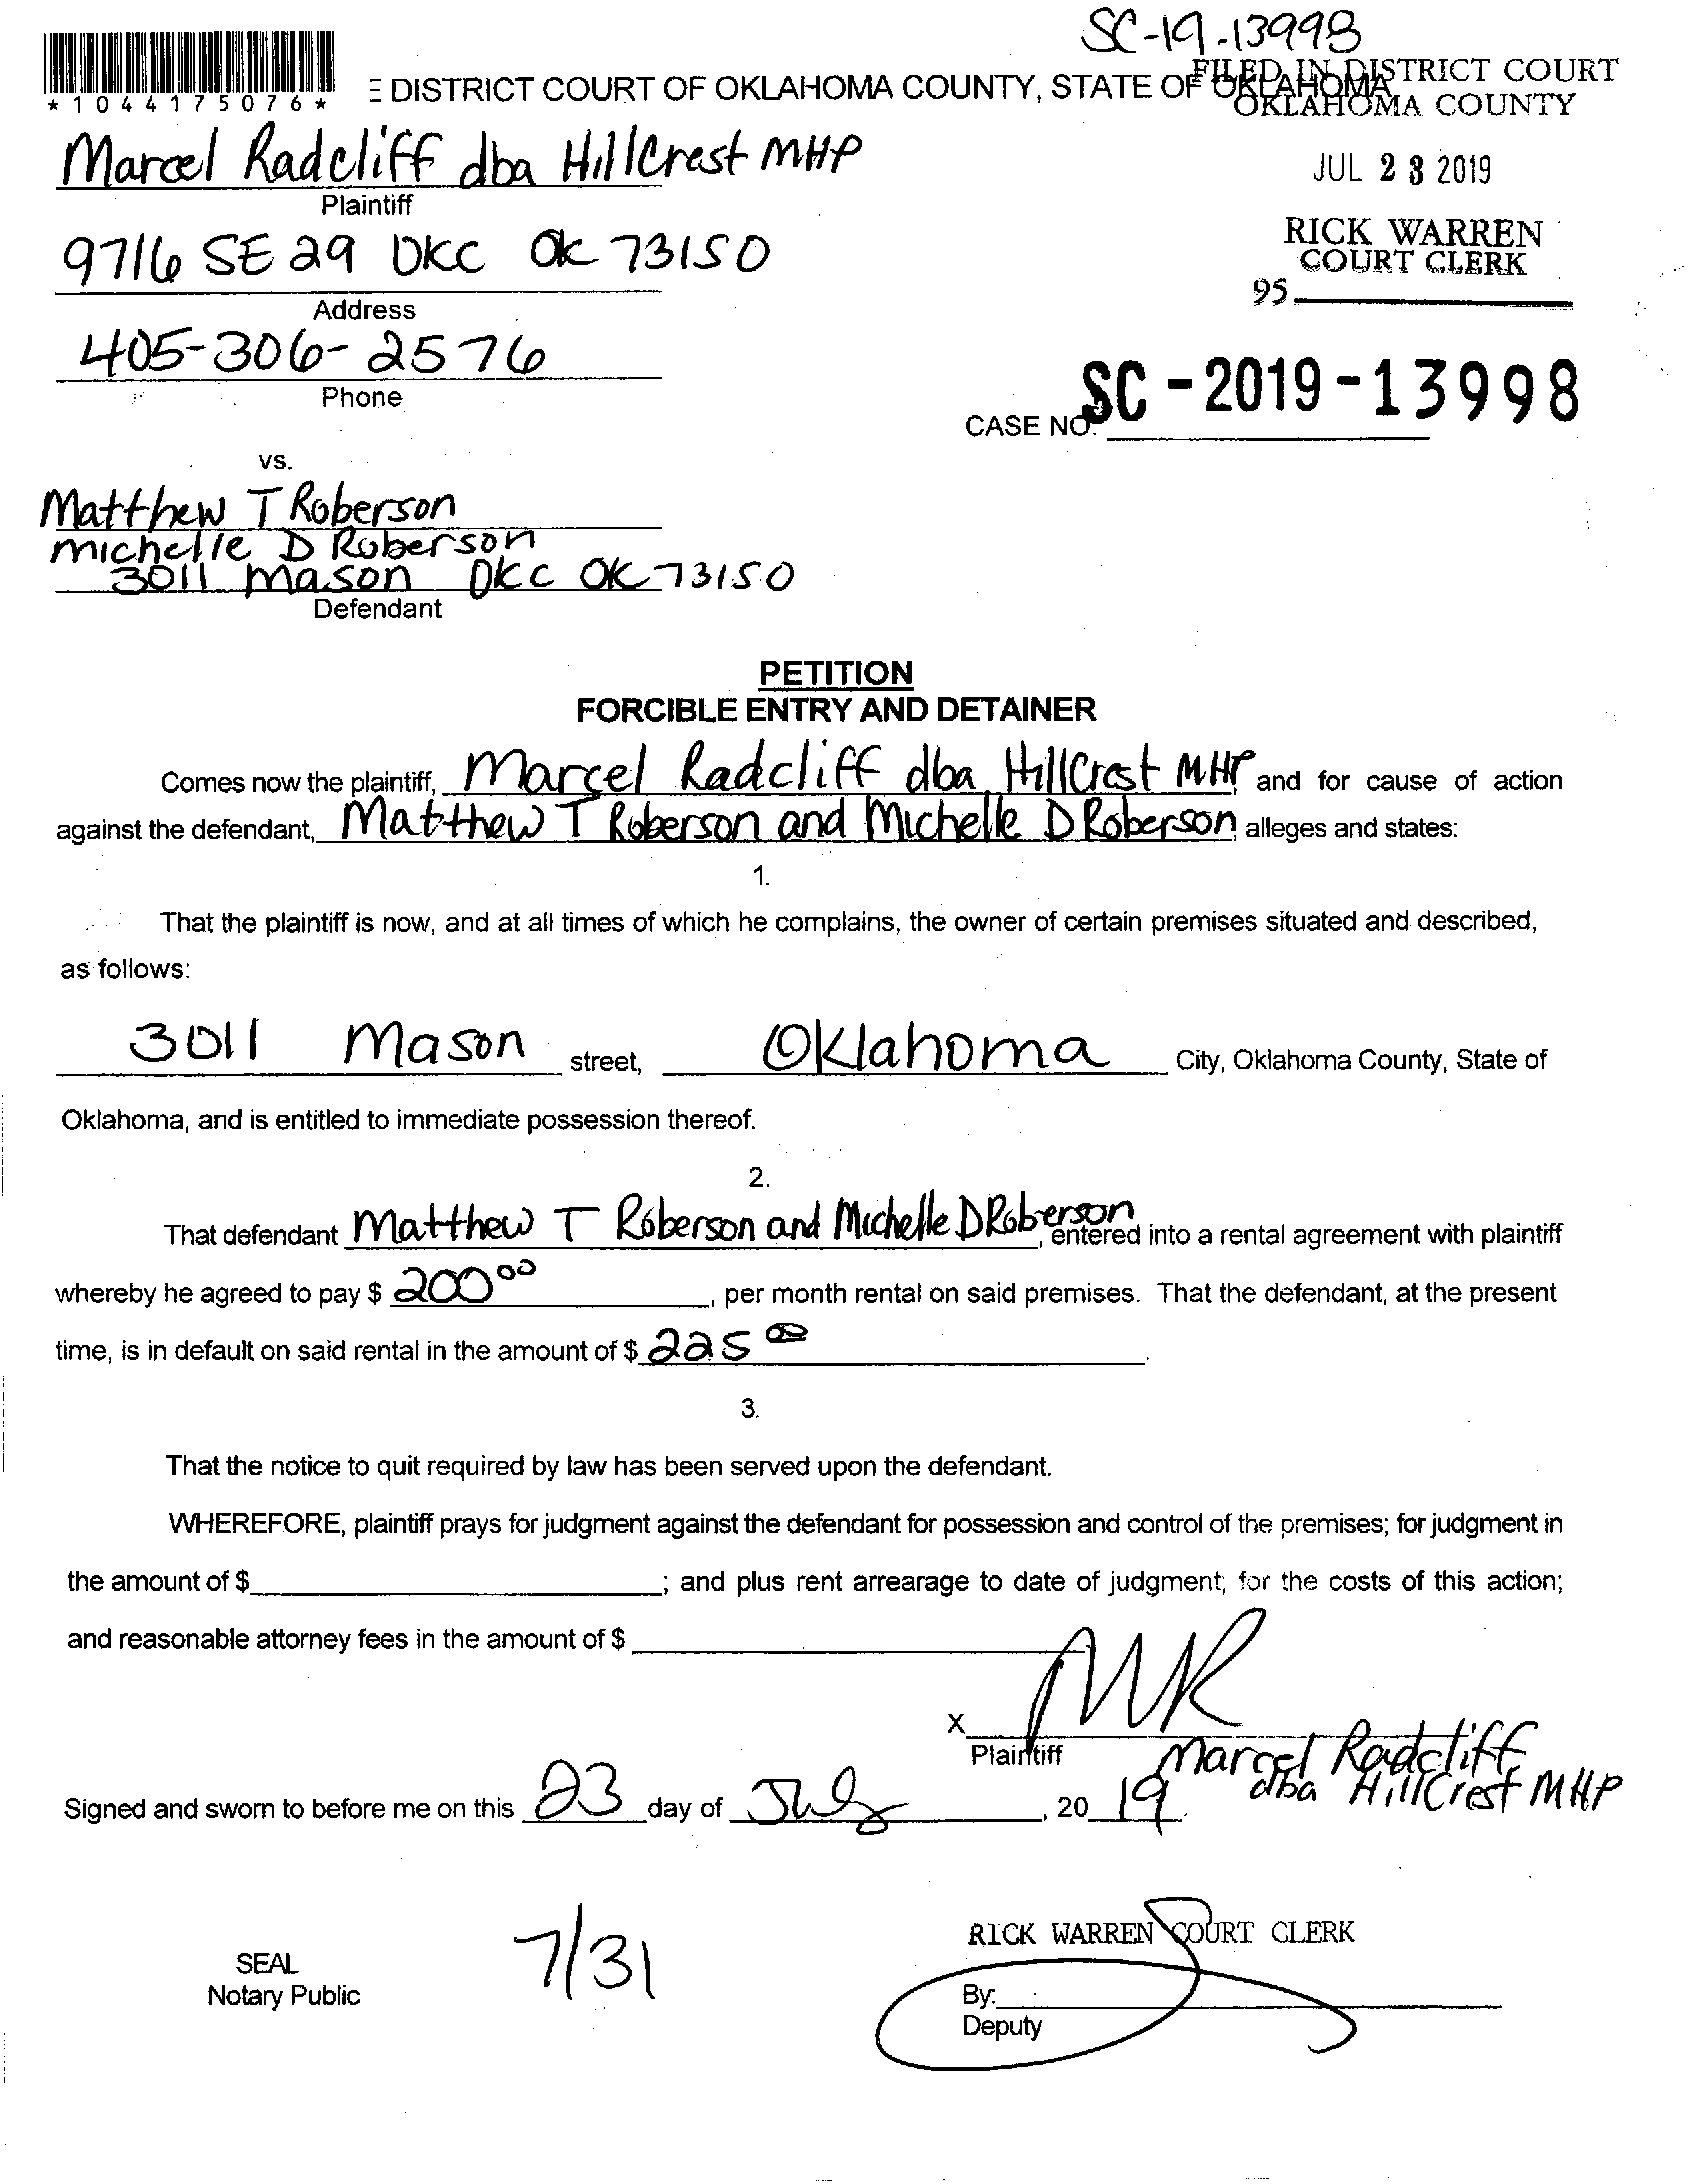 SC-19-13998
*1044175076*
E DISTRICT COURT OF OKLAHOMA COUNTY, STATE OF OKLAHOMA
FILED IN DISTRICT COURT
OKLAHOMA COUNTY
Marcel Radcliff dba HillCrest MHP
Plaintiff
JUL 23 2019
9716 SE 29 OKC OK 73150
Address
RICK WARREN
COURT CLERK
95
405-306-2576
Phone
CASE NO. SC-2019-13998
vs.
Matthew T Roberson
Michelle D Roberson
3011 Mason OKC OK 73150
Defendant
PETITION
FORCIBLE ENTRY AND DETAINER
Comes now the plaintiff, Marcel Radcliff dba HillCrest MHP and for cause of action
against the defendant, Matthew T Roberson and Michelle D Roberson alleges and states:
1.
That the plaintiff is now, and at all times of which he complains, the owner of certain premises situated and described,
as follows:
3011 Mason street, Oklahoma City, Oklahoma County, State of
Oklahoma, and is entitled to immediate possession thereof.
2.
That defendant Matthew T Roberson and Michelle D Roberson, entered into a rental agreement with plaintiff
whereby he agreed to pay $ 200 00, per month rental on said premises. That the defendant, at the present
time, is in default on said rental in the amount of $ 225 00.
3.
That the notice to quit required by law has been served upon the defendant.
WHEREFORE, plaintiff prays for judgment against the defendant for possession and control of the premises; for judgment in
the amount of $ ; and plus rent arrearage to date of judgment; for the costs of this action;
and reasonable attorney fees in the amount of $
X MR
Plaintiff Marcel Radcliff
dba HillCrest MHP
Signed and sworn to before me on this 23 day of July, 20 19.
7/31
RICK WARREN COURT CLERK
SEAL
Notary Public
By:
Deputy